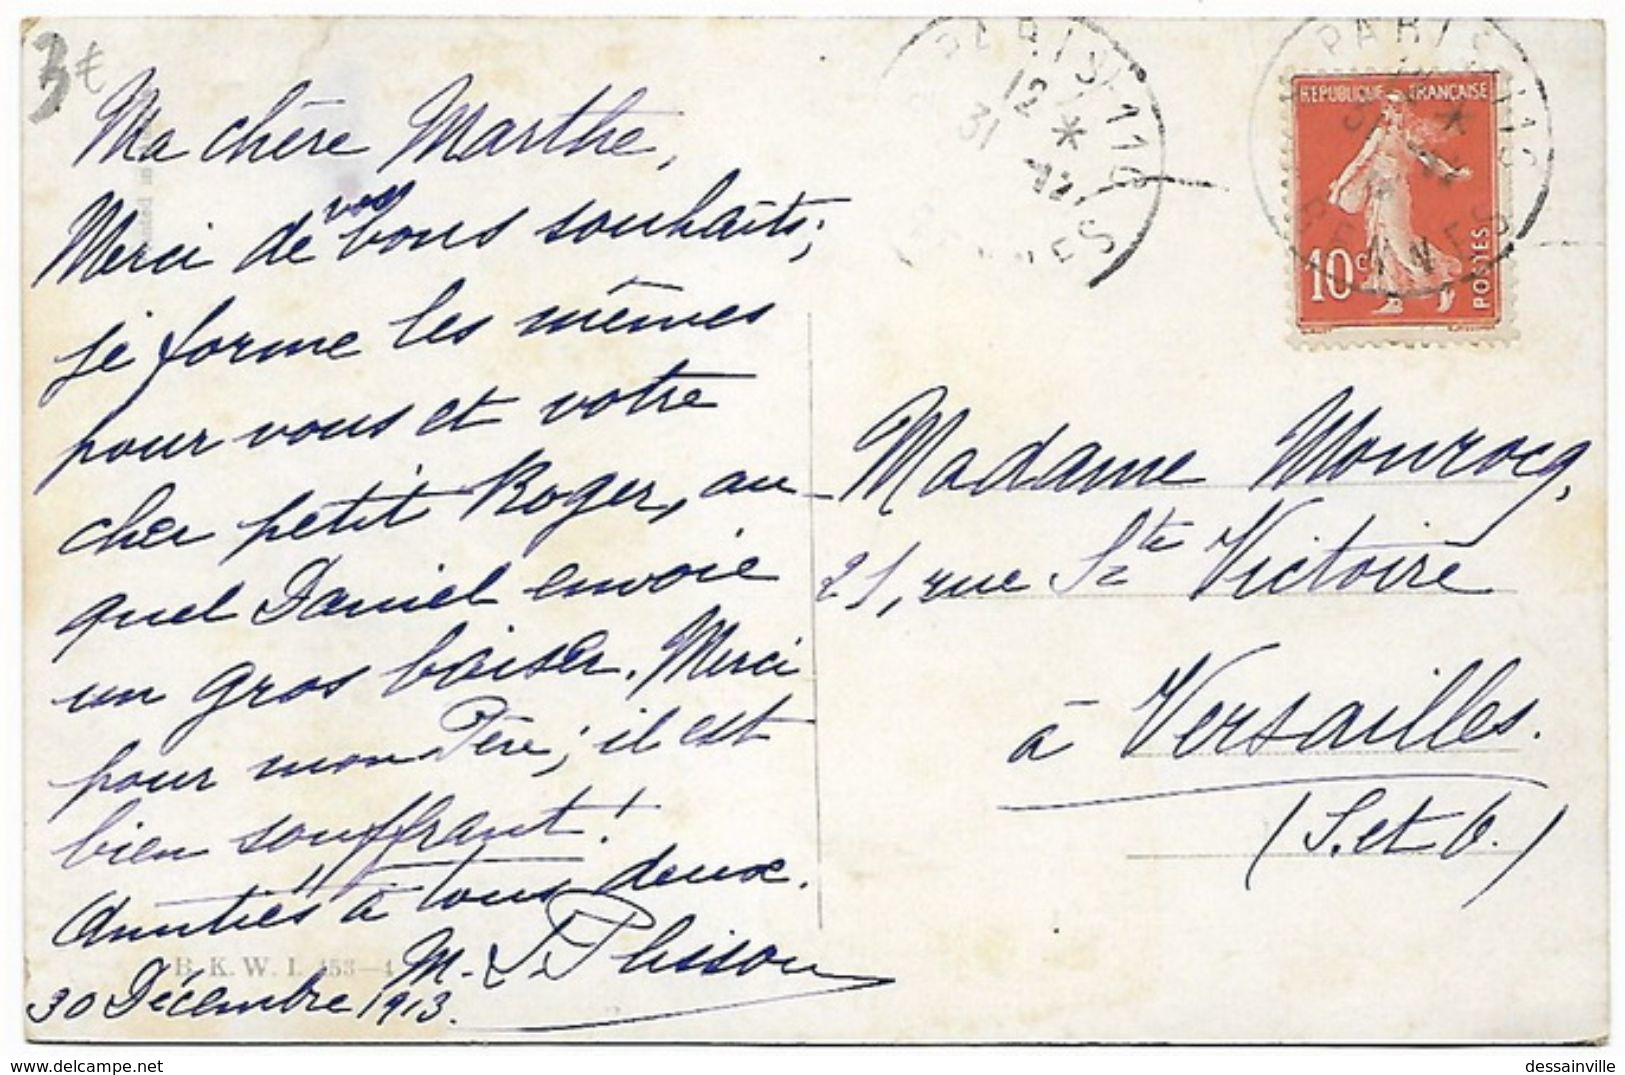 3€
Ma chère Marthe,
Merci de vos bons souhaits;
je forme les mêmes
pour vous et votre
cher petit Roger, au-
quel Daniel envoie
un gros baiser. Merci
pour mon Père; il est
bien souffrant!
Amitiés à tous deux.
M. Plisson
30 Décembre 1913.
B. K. W. I. 453-4
PARIS 110
12
31 12
RENNES
PARIS 110
RENNES
REPUBLIQUE FRANÇAISE
10c
POSTES
Madame Mourocq,
21, rue Ste Victoire
à Versailles.
(S. et O.)
dessainville